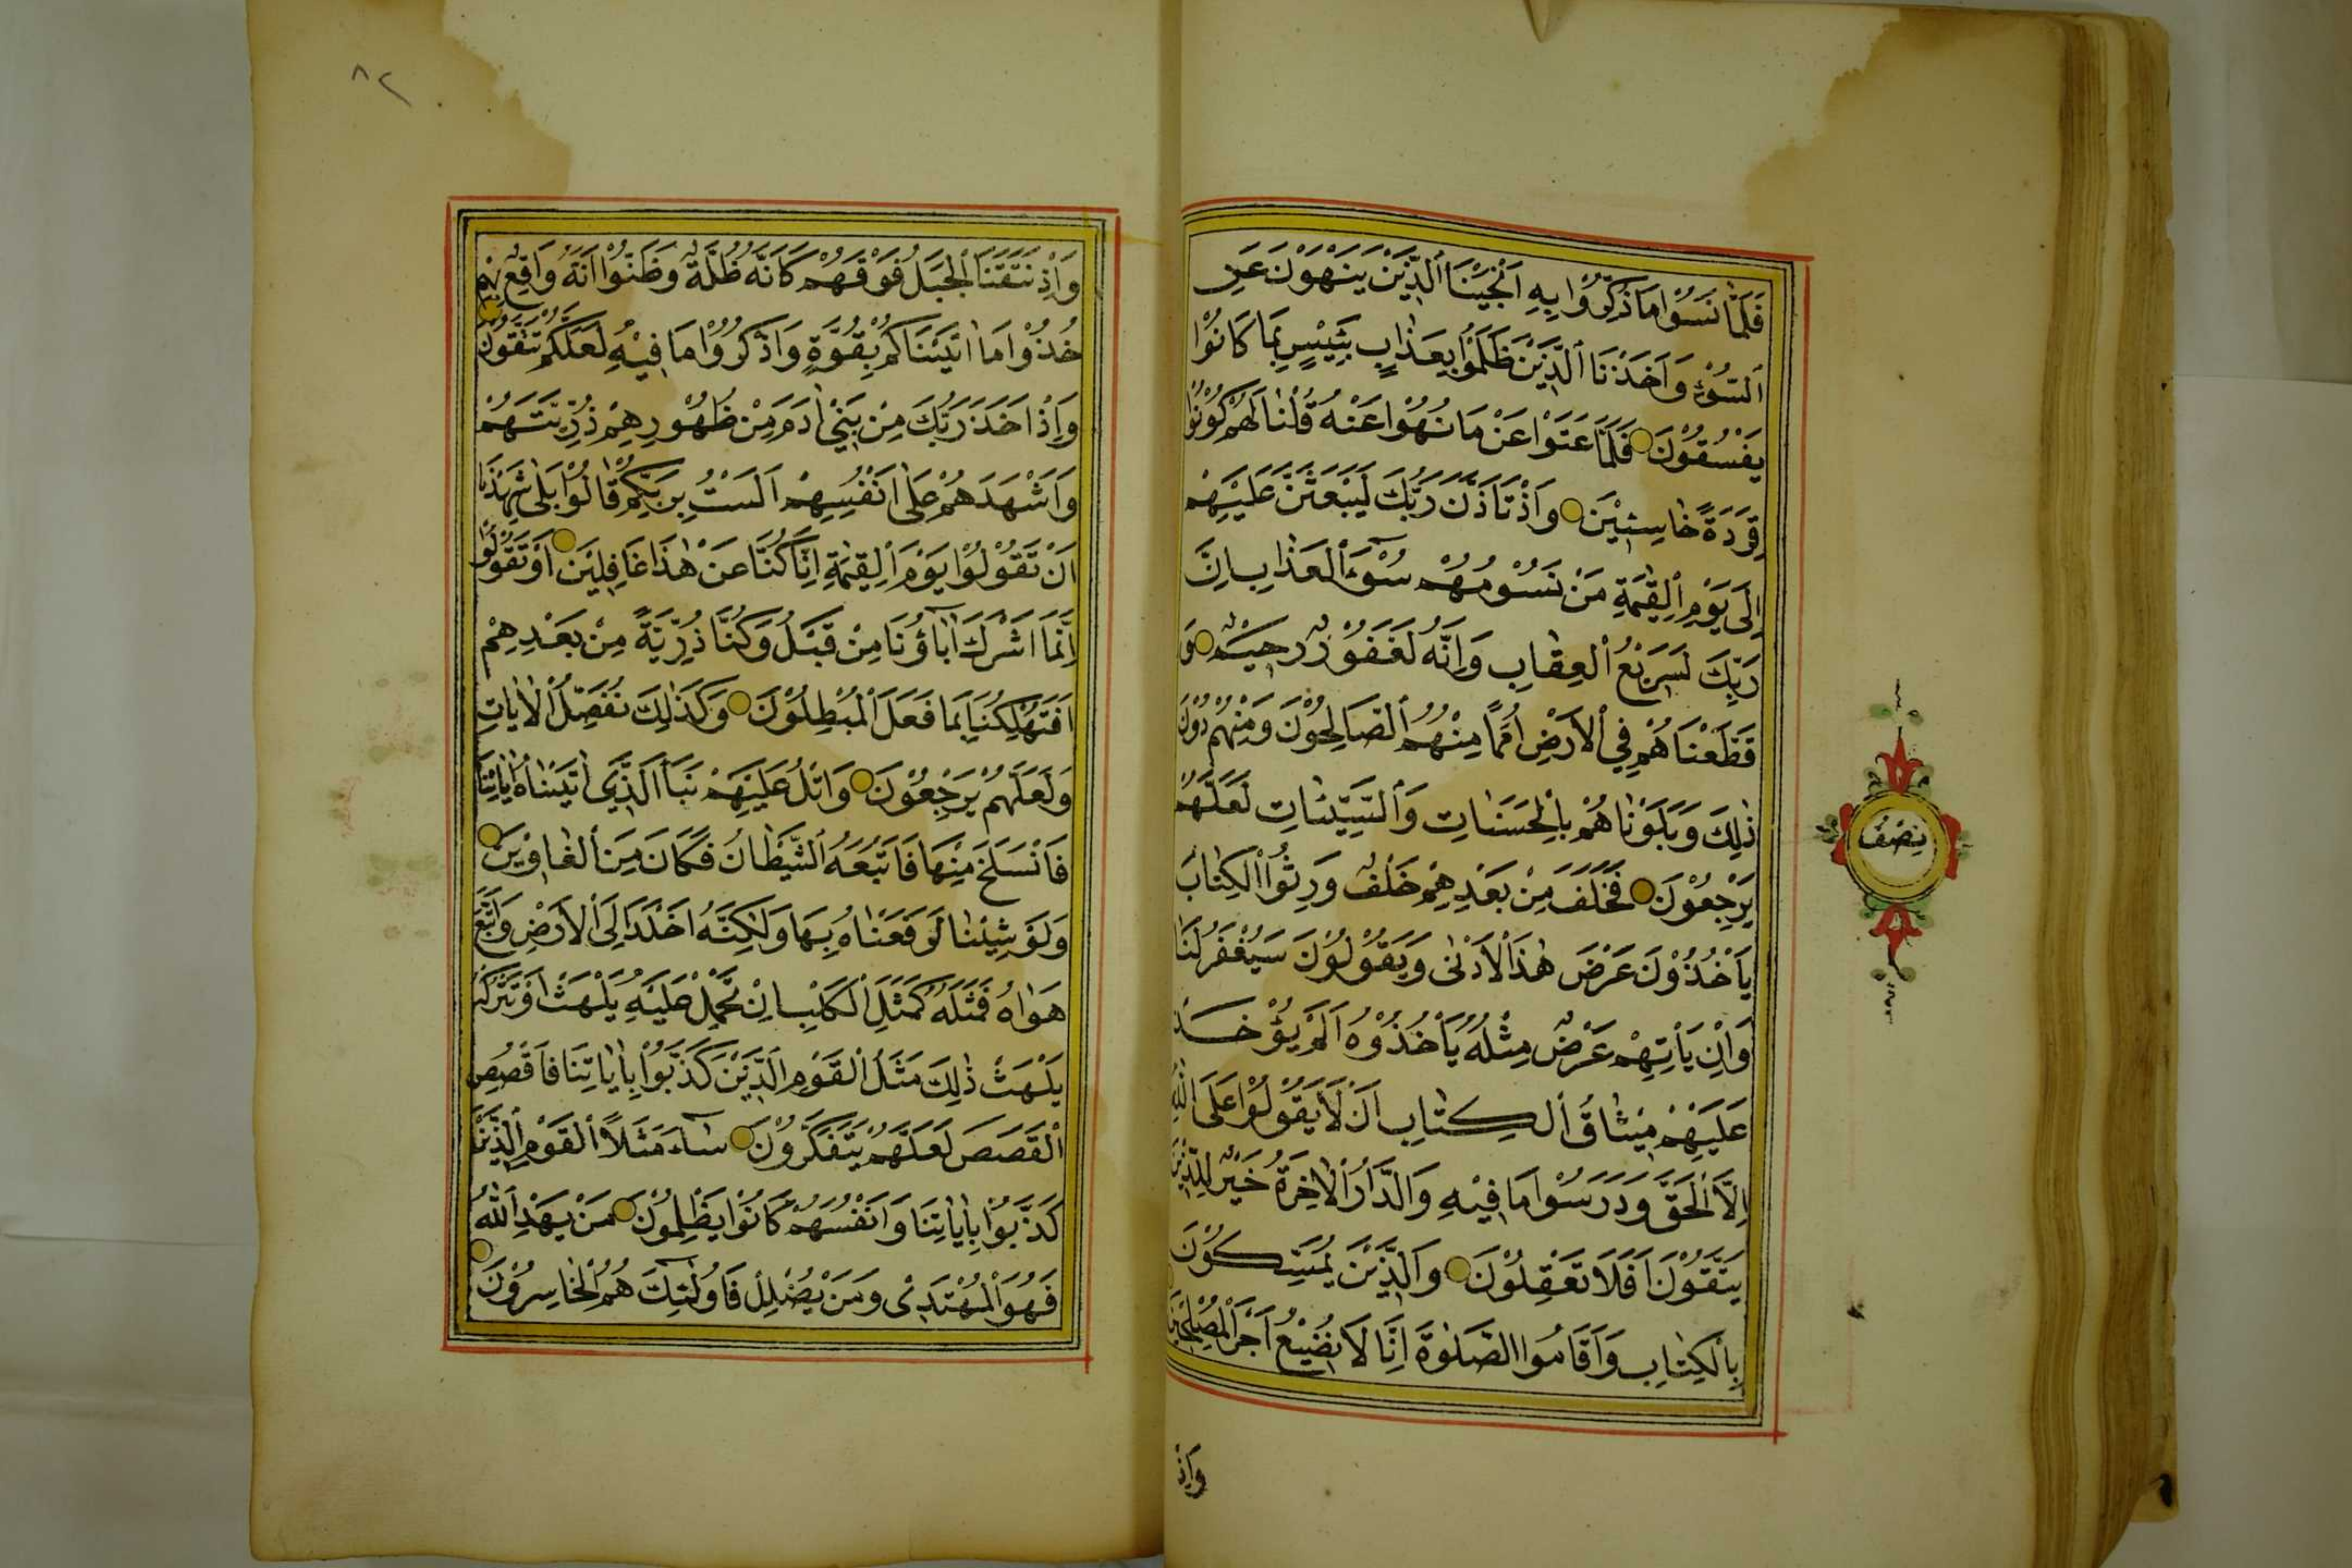 فَلَمَّا نَسُوْا مَا ذُكِّرُوْا بِهِ اَنْجَيْنَا الَّذِيْنَ يَنْهَوْنَ عَنِ
السُّوْءِ وَاَخَذْنَا الَّذِيْنَ ظَلَمُوْا بِعَذَابٍ بَئِيْسٍ بِمَا كَانُوْا
يَفْسُقُوْنَ فَلَمَّا عَتَوْا عَنْ مَا نُهُوْا عَنْهُ قُلْنَا لَهُمْ كُوْنُوْا
قِرَدَةً خَاسِئِيْنَ وَاِذْ تَاَذَّنَ رَبُّكَ لَيَبْعَثَنَّ عَلَيْهِمْ
اِلَى يَوْمِ الْقِيٰمَةِ مَنْ يَسُوْمُهُمْ سُوْءَ الْعَذَابِ اِنَّ
رَبَّكَ لَسَرِيْعُ الْعِقَابِ وَاِنَّهُ لَغَفُوْرٌ رَحِيْمٌ وَ
قَطَّعْنَاهُمْ فِي الْاَرْضِ اُمَمًا مِنْهُمُ الصَّالِحُوْنَ وَمِنْهُمْ دُوْنَ
ذٰلِكَ وَبَلَوْنَاهُمْ بِالْحَسَنَاتِ وَالسَّيِّئَاتِ لَعَلَّهُمْ
يَرْجِعُوْنَ فَخَلَفَ مِنْ بَعْدِهِمْ خَلْفٌ وَرِثُوا الْكِتَابَ
يَاْخُذُوْنَ عَرَضَ هٰذَا الْاَدْنٰى وَيَقُوْلُوْنَ سَيُغْفَرُ لَنَا
وَاِنْ يَاْتِهِمْ عَرَضٌ مِثْلُهُ يَاْخُذُوْهُ اَلَمْ يُؤْخَذْ
عَلَيْهِمْ مِيْثَاقُ الْكِتَابِ اَنْ لَا يَقُوْلُوْا عَلَى اللّٰهِ
اِلَّا الْحَقَّ وَدَرَسُوْا مَا فِيْهِ وَالدَّارُ الْاٰخِرَةُ خَيْرٌ لِلَّذِيْنَ
يَتَّقُوْنَ اَفَلَا تَعْقِلُوْنَ وَالَّذِيْنَ يُمَسِّكُوْنَ
بِالْكِتَابِ وَاَقَامُوا الصَّلٰوةَ اِنَّا لَا نُضِيْعُ اَجْرَ الْمُصْلِحِيْنَ
وَاِذْ
نِصْفُ
٨٢
وَاِذْ نَتَقْنَا الْجَبَلَ فَوْقَهُمْ كَاَنَّهُ ظُلَّةٌ وَظَنُّوْا اَنَّهُ وَاقِعٌ بِهِمْ
خُذُوْا مَا اٰتَيْنَاكُمْ بِقُوَّةٍ وَاذْكُرُوْا مَا فِيْهِ لَعَلَّكُمْ تَتَّقُوْنَ
وَاِذْ اَخَذَ رَبُّكَ مِنْ بَنِيْ اٰدَمَ مِنْ ظُهُوْرِهِمْ ذُرِّيَّتَهُمْ
وَاَشْهَدَهُمْ عَلٰى اَنْفُسِهِمْ اَلَسْتُ بِرَبِّكُمْ قَالُوْا بَلٰى شَهِدْنَا
اَنْ تَقُوْلُوْا يَوْمَ الْقِيٰمَةِ اِنَّا كُنَّا عَنْ هٰذَا غَافِلِيْنَ اَوْ تَقُوْلُوْا
اِنَّمَا اَشْرَكَ اٰبَاؤُنَا مِنْ قَبْلُ وَكُنَّا ذُرِّيَّةً مِنْ بَعْدِهِمْ
اَفَتُهْلِكُنَا بِمَا فَعَلَ الْمُبْطِلُوْنَ وَكَذٰلِكَ نُفَصِّلُ الْاٰيَاتِ
وَلَعَلَّهُمْ يَرْجِعُوْنَ وَاتْلُ عَلَيْهِمْ نَبَاَ الَّذِي اٰتَيْنَاهُ اٰيَاتِنَا
فَانْسَلَخَ مِنْهَا فَاَتْبَعَهُ الشَّيْطَانُ فَكَانَ مِنَ الْغَاوِيْنَ
وَلَوْ شِئْنَا لَرَفَعْنَاهُ بِهَا وَلٰكِنَّهُ اَخْلَدَ اِلَى الْاَرْضِ وَاتَّبَعَ
هَوَاهُ فَمَثَلُهُ كَمَثَلِ الْكَلْبِ اِنْ تَحْمِلْ عَلَيْهِ يَلْهَثْ اَوْ تَتْرُكْهُ
يَلْهَثْ ذٰلِكَ مَثَلُ الْقَوْمِ الَّذِيْنَ كَذَّبُوْا بِاٰيَاتِنَا فَاقْصُصِ
الْقَصَصَ لَعَلَّهُمْ يَتَفَكَّرُوْنَ سَاءَ مَثَلًا الْقَوْمُ الَّذِيْنَ
كَذَّبُوْا بِاٰيَاتِنَا وَاَنْفُسَهُمْ كَانُوْا يَظْلِمُوْنَ مَنْ يَهْدِ اللّٰهُ
فَهُوَ الْمُهْتَدِيْ وَمَنْ يُضْلِلْ فَاُولٰئِكَ هُمُ الْخَاسِرُوْنَ